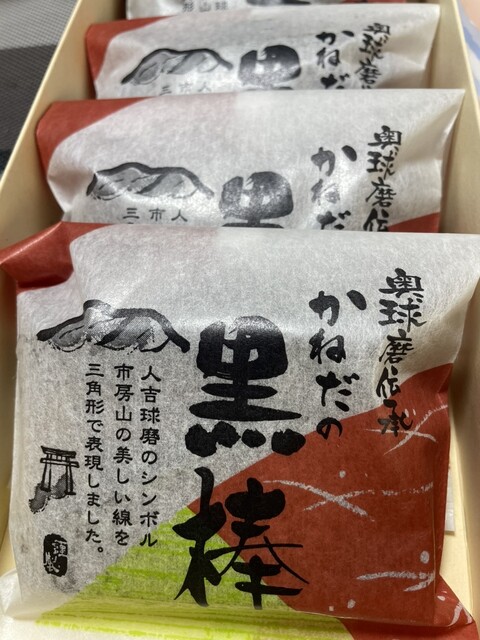 奥球磨伝承
かねだの
黒棒
人吉球磨のシンボル
市房山の美しい線を
三角形で表現しました。
謹製
奥球磨伝
かねだ
黒
人
市
三
奥球磨
かねだ
黒
人
市
三